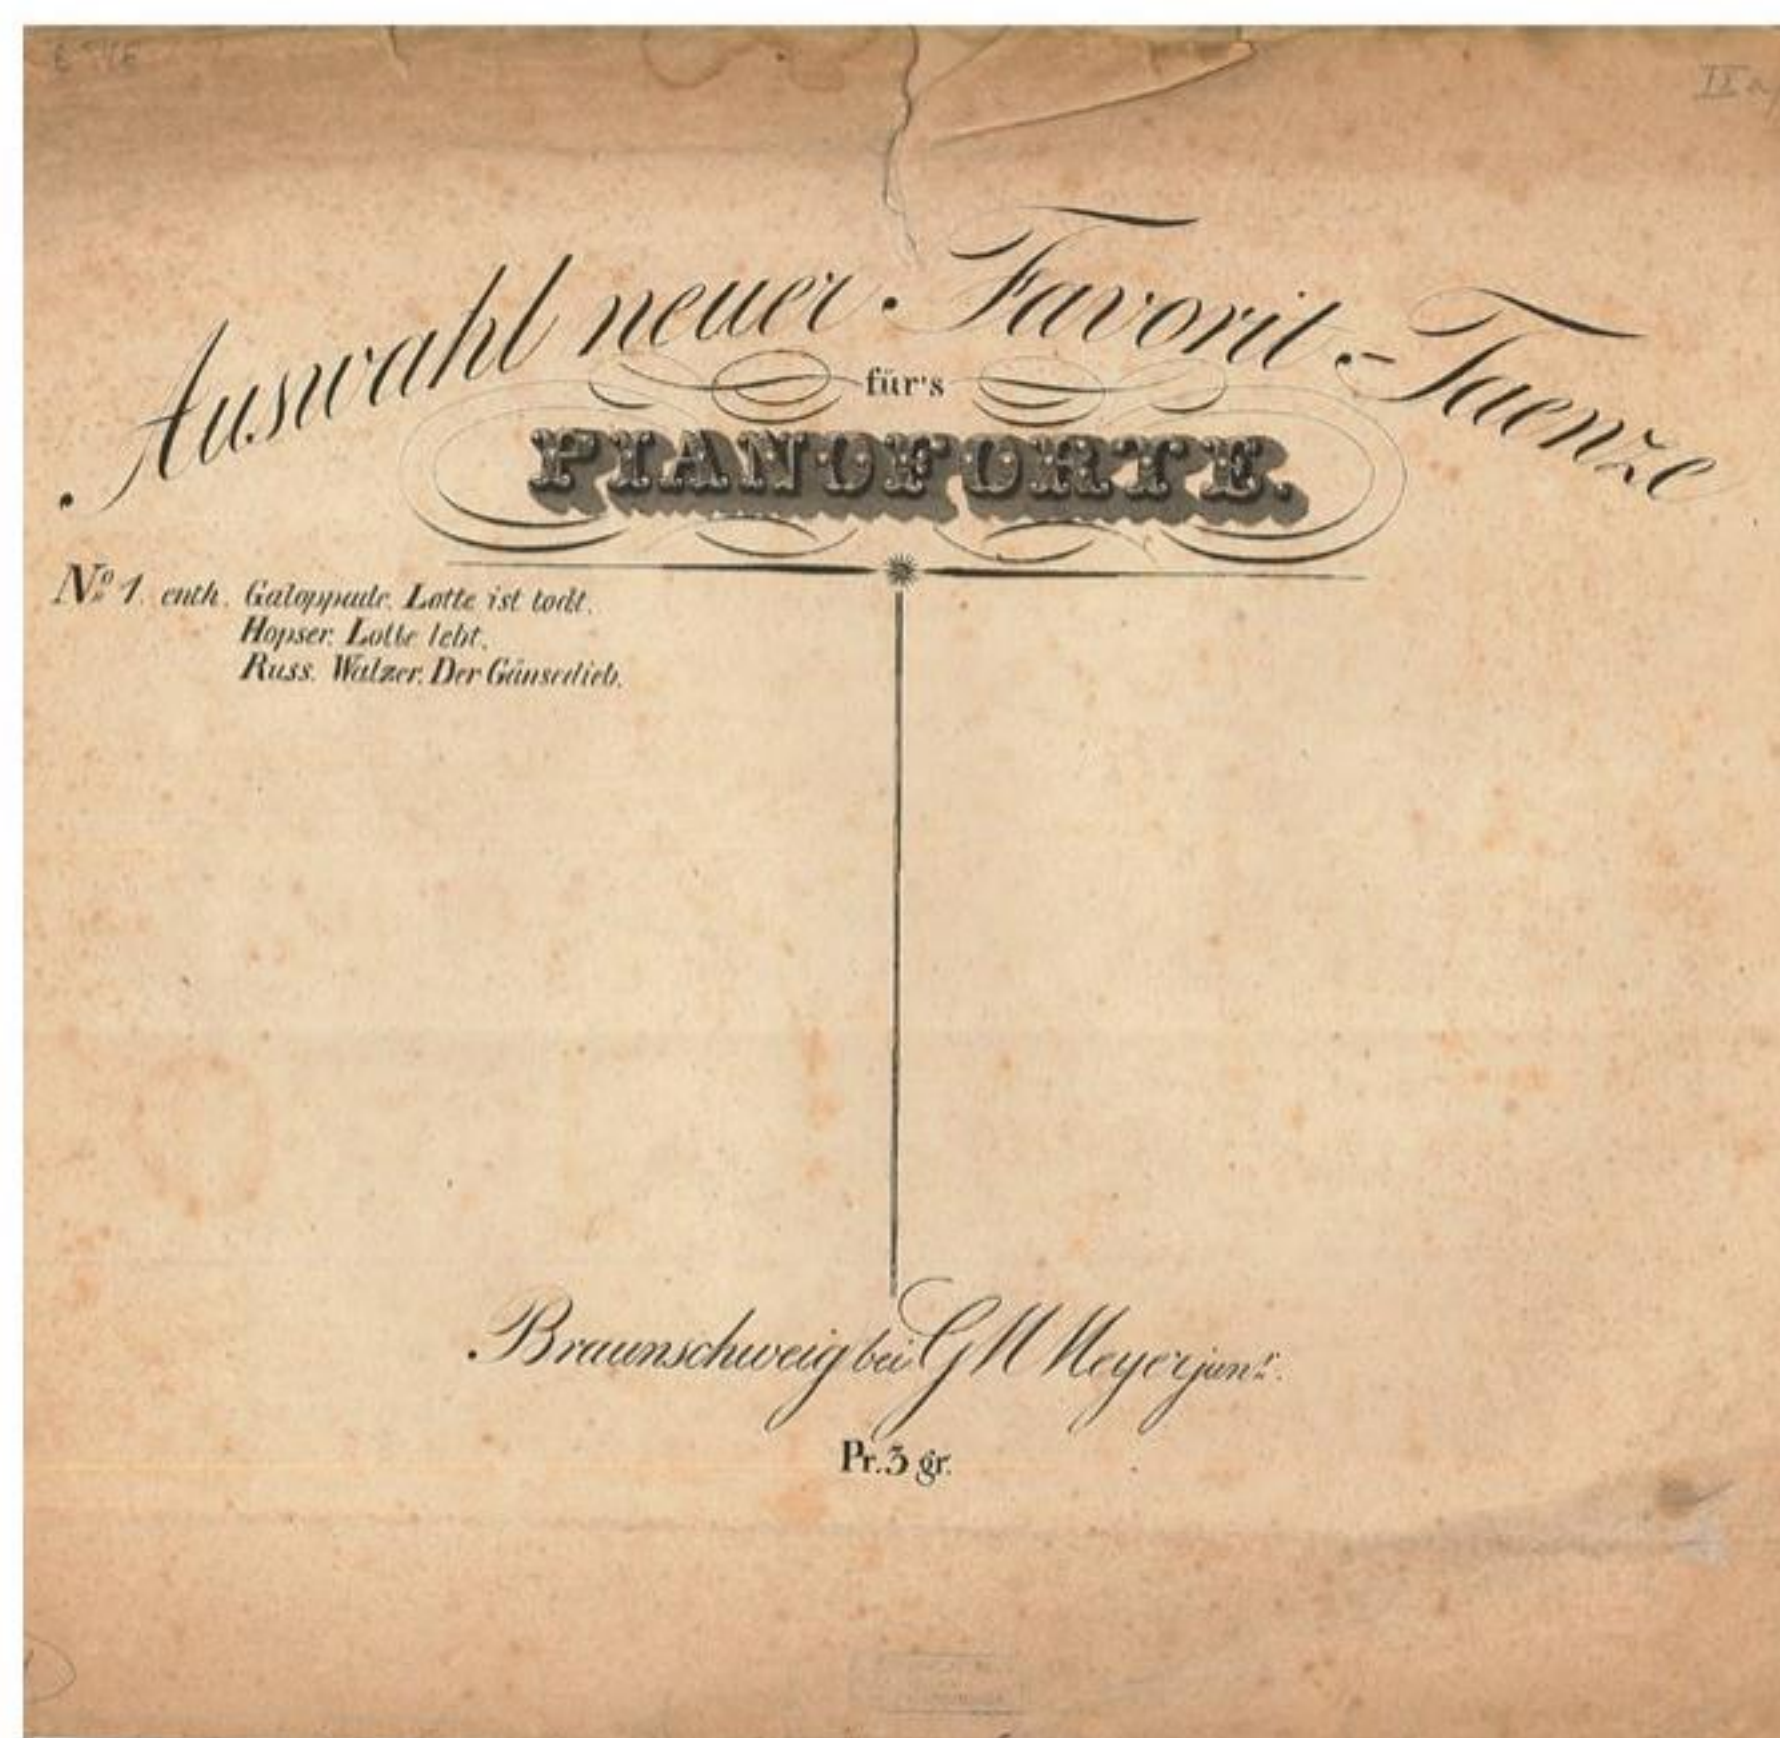 Auswahl neuer Favorit-Taenze
für's
PIANOFORTE.
No. 1. enth. Galoppade. Lotte ist todt.
Hopser. Lotte lebt.
Russ. Walzer. Der Gänsedieb.
Braunschweig bei G M Meyer junr.
Pr. 3 gr.